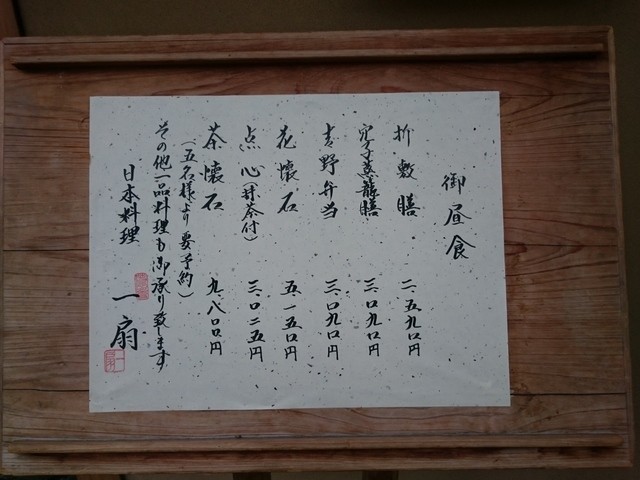 御昼食
折敷膳 二.五九〇円
穴子蒸籠膳 三.〇九〇円
吉野弁当 三.〇九〇円
花懐石 五.一五〇円
点心(抹茶付) 三.〇二五円
茶懐石 九.八〇〇円
(五名様より要予約)
その他一品料理も御承り致します
日本料理 一扇